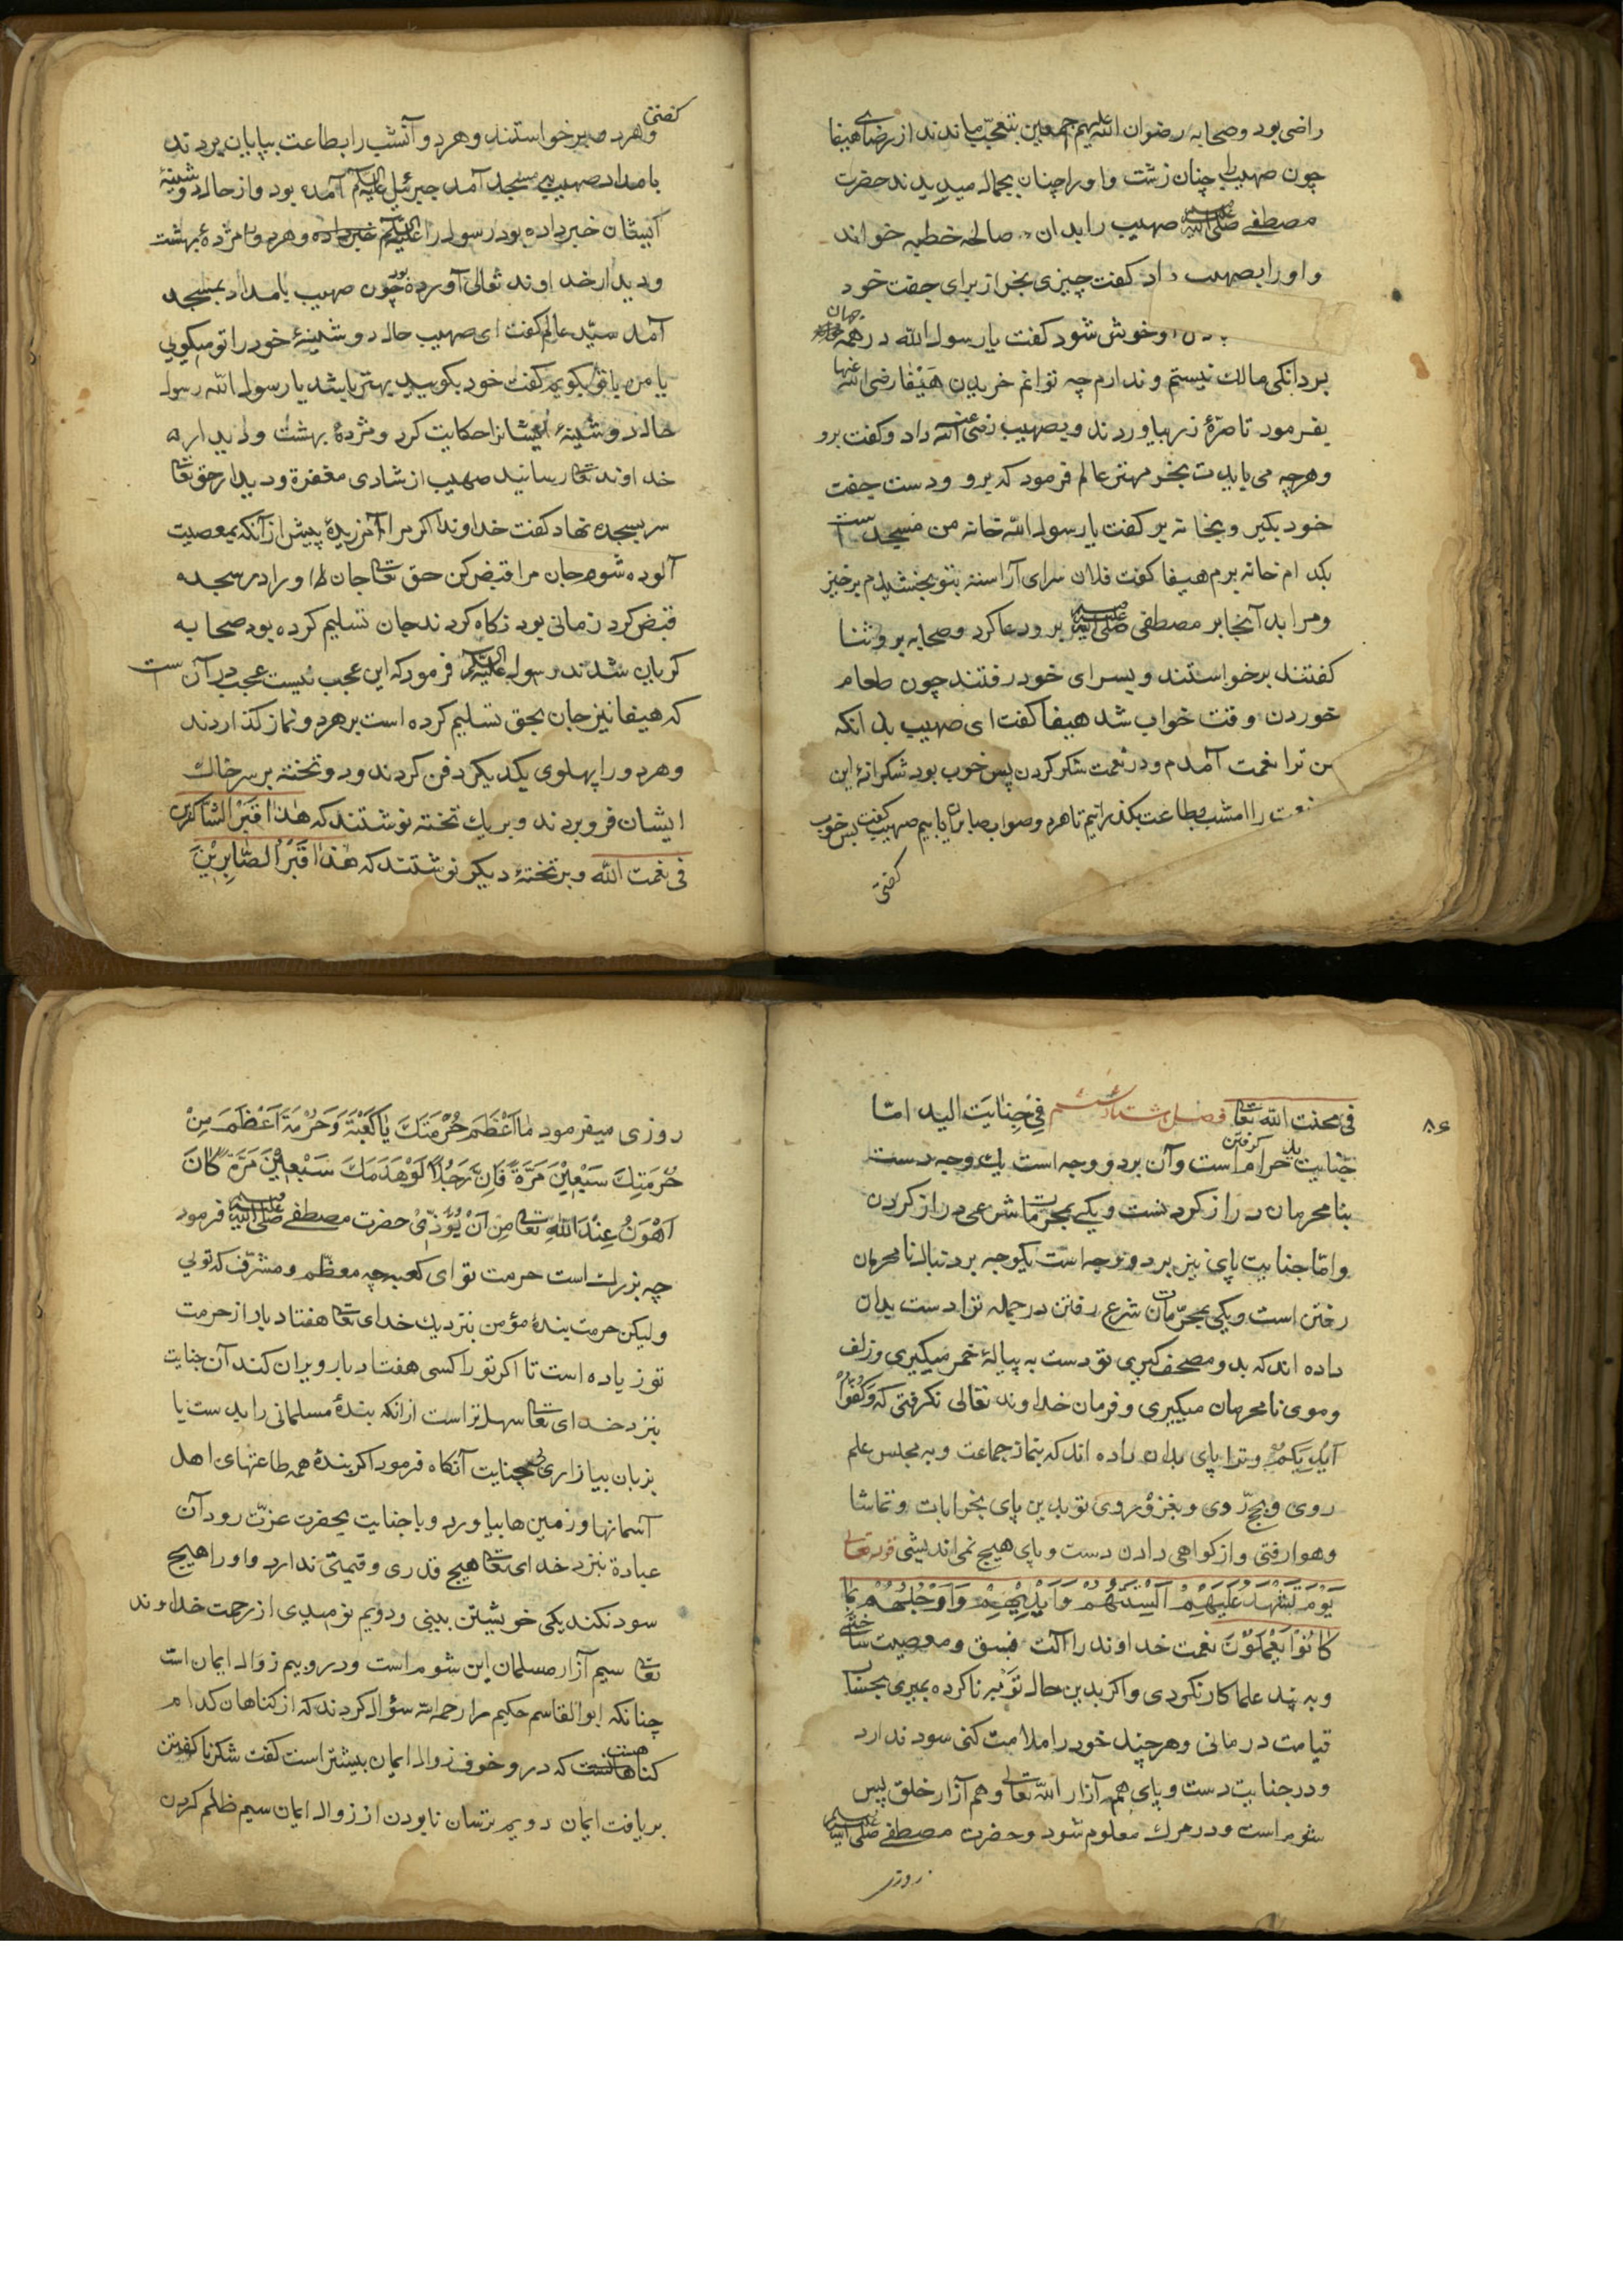 راضی بود وصحابه رضوان الله علیهم اجمعین بتعجب ماندند از رضای هیفا
چون صهیب را چنان زشت و او را چنان بجمال میدیدند حضرت
مصطفی صلی الله علیه وسلم صهیب را بدان صالحه خطبه خواند
و او را بصهیب داد کفت چیزی بخر از برای جفت خود
او خوش شود کفت یا رسول الله در همه جهان
بردانکی مالک نیستم و ندارم چه توانم خریدن هیفا رضی الله عنها
بفرمود تا صرّهٔ زر بیاوردند و بصهیب رضی الله عنه داد و کفت برو
و هرچه می بایدت بخر مهتر عالم فرمود که برو و دست جفت
خود بکیر و بخانه بر کفت یا رسول الله خانه من مسجد است
بکدام خانه برم هیفا کفت فلان سرای آراسته بتو بخشیدم برخیز
و مرا بدآنجا بر مصطفی صلی الله علیه وسلم برو دعا کرد و صحابه برو ثنا
کفتند برخواستند و بسرای خود رفتند چون طعام
خوردن وقت خواب شد هیفا کفت ای صهیب بدانکه
من ترا نعمت آمدم و در نعمت شکر کردن پس خوب بود شکرانهٔ این
نعمت را امشب بطاعت بکذرانیم تا هردو صواب صابران یابیم صهیب کفت پس خوب
کفتی
کفتی
و هردو برخواستند و هردو آنشب را بطاعت بپایان بردند
بامداد صهیب بمسجد آمد جبرئیل علیه السلام آمده بود و از حال دوشینهٔ
ایشان خبر داده بود رسول را علیه السلام خبر داده و هردو را مژدهٔ بهشت
و دیدار خداوند تعالی آورده بود چون صهیب بامداد بمسجد
آمد سیّد عالم کفت ای صهیب حال دوشینهٔ خود را تو میکویی
یا من با تو بکویم کفت خود بکویید بهتر باشد یا رسول الله رسول
حال دوشینهٔ ایشانرا حکایت کرد و مژدهٔ بهشت و دیدار
خداوند تعا رسانید صهیب از شادی مغفرة و دیدار حق تعا
سر بسجده نهاد کفت خداوندا اکر مرا آمرزیدهٔ پیش از آنکه بمعصیت
آلوده شوم جان مرا قبض کن حق تعا جان او را در سجده
قبض کرد زمانی بود نکاه کردند جان تسلیم کرده بود صحابه
کریان شدند رسول علیه السلام فرمود که این عجب نیست عجب در آن است
که هیفا نیز جان بحق تسلیم کرده است بر هردو نماز کذاردند
و هردو را پهلوی یکدیکر دفن کردند و دو تخته بر سر خاک
ایشان فرو بردند و بر یک تخته نوشتند که هٰذا قَبْرُ الشّاکرین
فی نعمت الله و بر تختهٔ دیکر نوشتند که هٰذا قَبْرُ الصّابِرینَ
٨٦
فی محنت الله تعا فصل هشتاد ششم فی جِنایَت الید امّا
جنایت ید حرام کرفتن است و آن بر دو وجه است یک وجه دست
بنامحرمان دراز کردنست و یکی بمحرمات شرعی دراز کردن
و امّا جنایت پای نیز بر دو وجه است یکوجه بر دنبال نامحرمان
رفتن است و یکی بمحرّمات شرع رفتن در جمله ترا دست بدان
داده اند که بدو مصحف کیری تو دست به پیالهٔ خمر میکیری و زلف
و موی نامحرمان میکیری و فرمان خداوند تعالی نکرفتی که وَکُفّوا
اَیْدِیَکُم و ترا پای بدان داده اند که بنماز جماعت و به مجلس علم
روی و بحج روی و بغزو روی تو بدین پای بخرابات و تماشا
و هوا رفتی و از کواهی دادن دست و پای هیچ نمی اندیشی قوله تعالی
یَوْمَ تَشْهَدُ عَلَیهِمْ اَلْسِنَتُهُمْ وَاَیْدِیهِمْ وَاَرْجُلُهُمْ بِمَا
کانُوْا یَعْمَلُوْنَ نعمت خداوند را آلت فسق و معصیت ساختی
و به پند علما کار نکردی و اکر بدین حال توبه ناکرده بمیری بحساب
قیامت درمانی و هرچند خود را ملامت کنی سود ندارد
و در جنایت دست و پای هم آزار الله تعالی و هم آزار خلق پس
شوم است و در مرک معلوم شود و حضرت مصطفی صلی الله علیه وسلم
روزی
روزی میفرمود مٰا اَعْظَمَ حُرْمَتَكَ یٰا کَعْبَة وَحُرْمَة اَعْظَمَ مِنْ
حُرْمَتِكَ سَبْعِیْنَ مَرَّةً فَاِنَّ رَجُلاً لَوْ هَدَمَكَ سَبْعِیْنَ مَرَّةً کَانَ
اَهْوَنُ عِنْدَ اللهِ تعا مِن اَنْ یُؤْذِیَ حضرت مصطفی صلی الله علیه وسلم فرمود
چه بزرک است حرمت تو ای کعبه چه معظّم و مشرّف که تویی
و لیکن حرمت بندهٔ مؤمن بنزدیك خدای تعا هفتاد بار از حرمت
تو زیاده است تا اکر تو را کسی هفتاد بار ویران کند آن جنایت
بنزد خدای تعا سهل تر است از انکه بندهٔ مسلمانی را بدست یا
بزبان بیازاری بی جنایت آنکاه فرمود اکر بندهٔ همه طاعتهای اهل
آسمانها و زمین ها بیاورد و با جنایت بحضرت عزّت رود آن
عبادة بنزد خدای تعا هیچ قدری و قیمتی ندارد و او را هیچ
سود نکند یکی خویشتن بینی و دویم نومیدی از رحمت خداوند
تعا سیم آزار مسلمان این شوم است و درو بیم زوال ایمان است
چنانکه ابو القاسم حکیم را رحمه الله سؤال کردند که از کناهان کدام
کناه است که درو خوف زوال ایمان بیشتر است کفت شکر ناکفتن
بر یافت ایمان دویم ترسان نابودن از زوال ایمان سیم ظلم کردن